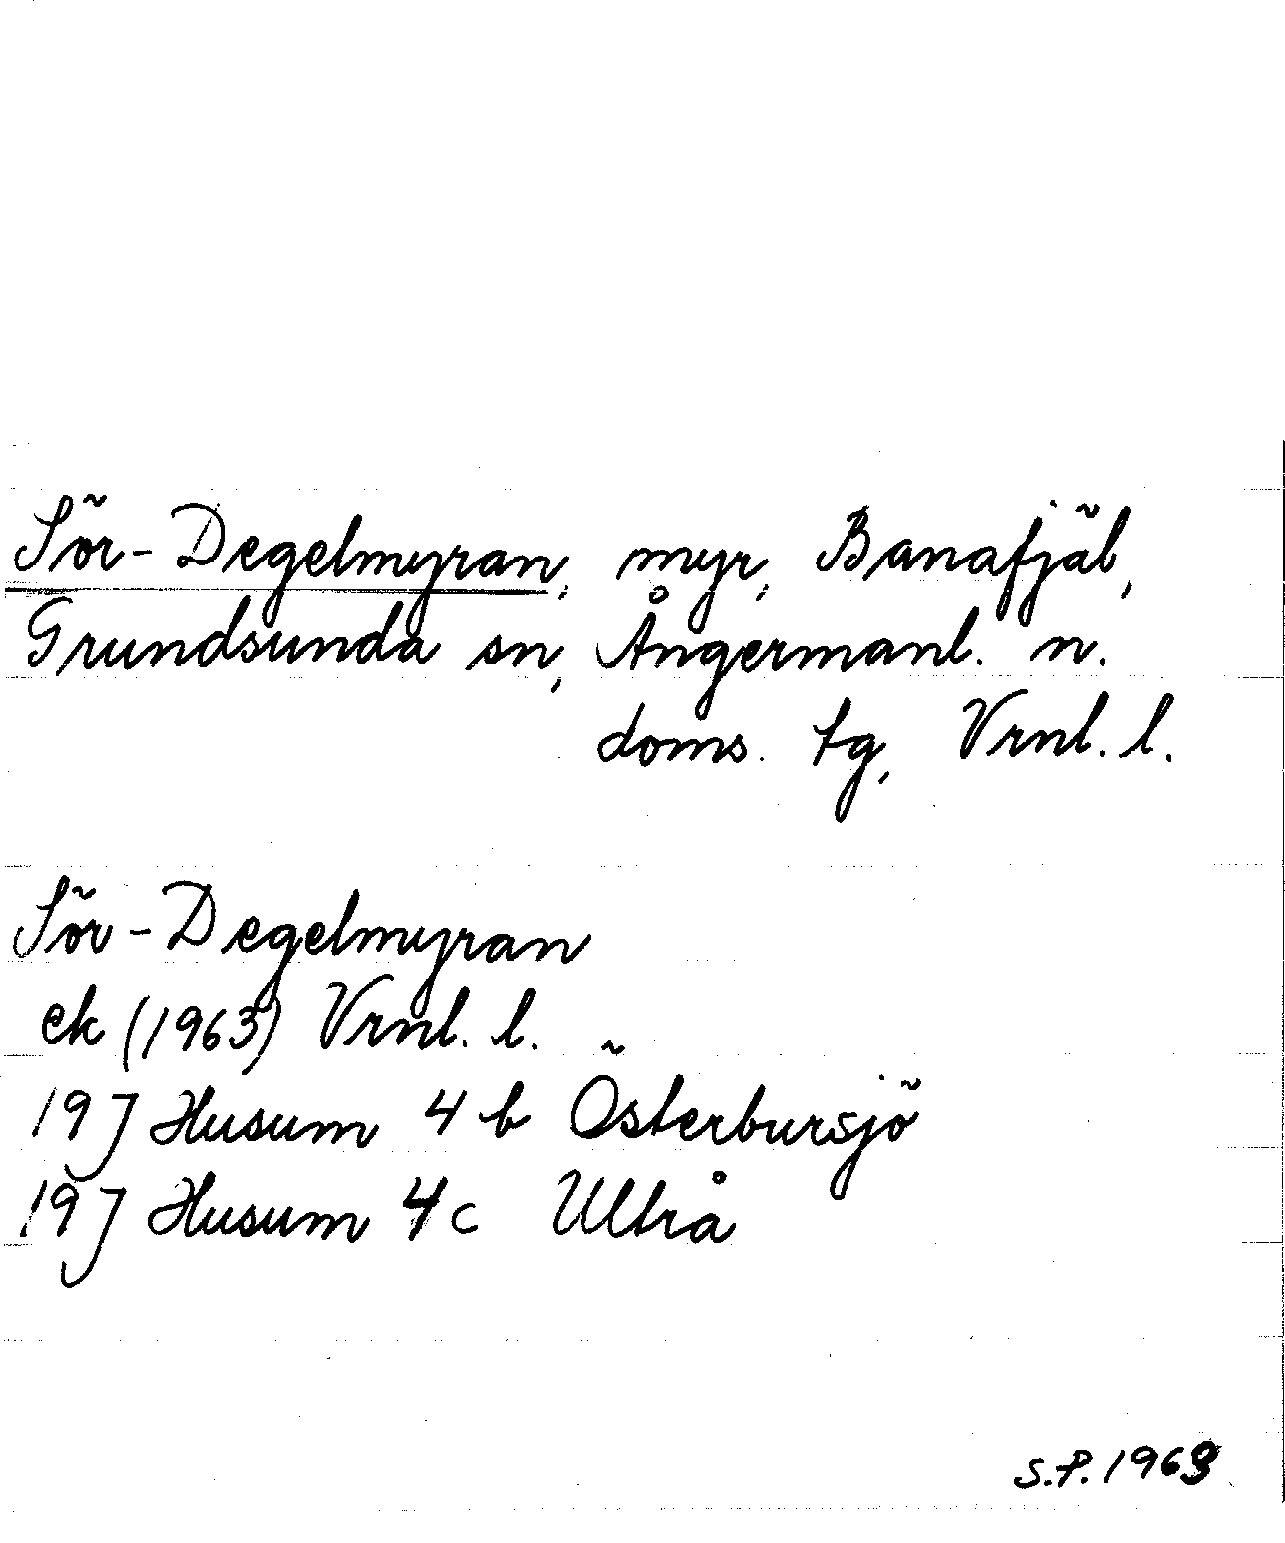 Sör-Degelmyran, myr, Banafjäl,
Grundsunda sn, Ångermanl. n.
doms. tg, Vrnl. l.
Sör-Degelmyran
ek (1963) Vrnl. l.
19J Husum 4 b Österbursjö
19J Husum 4c Ultrå
S.P. 1969